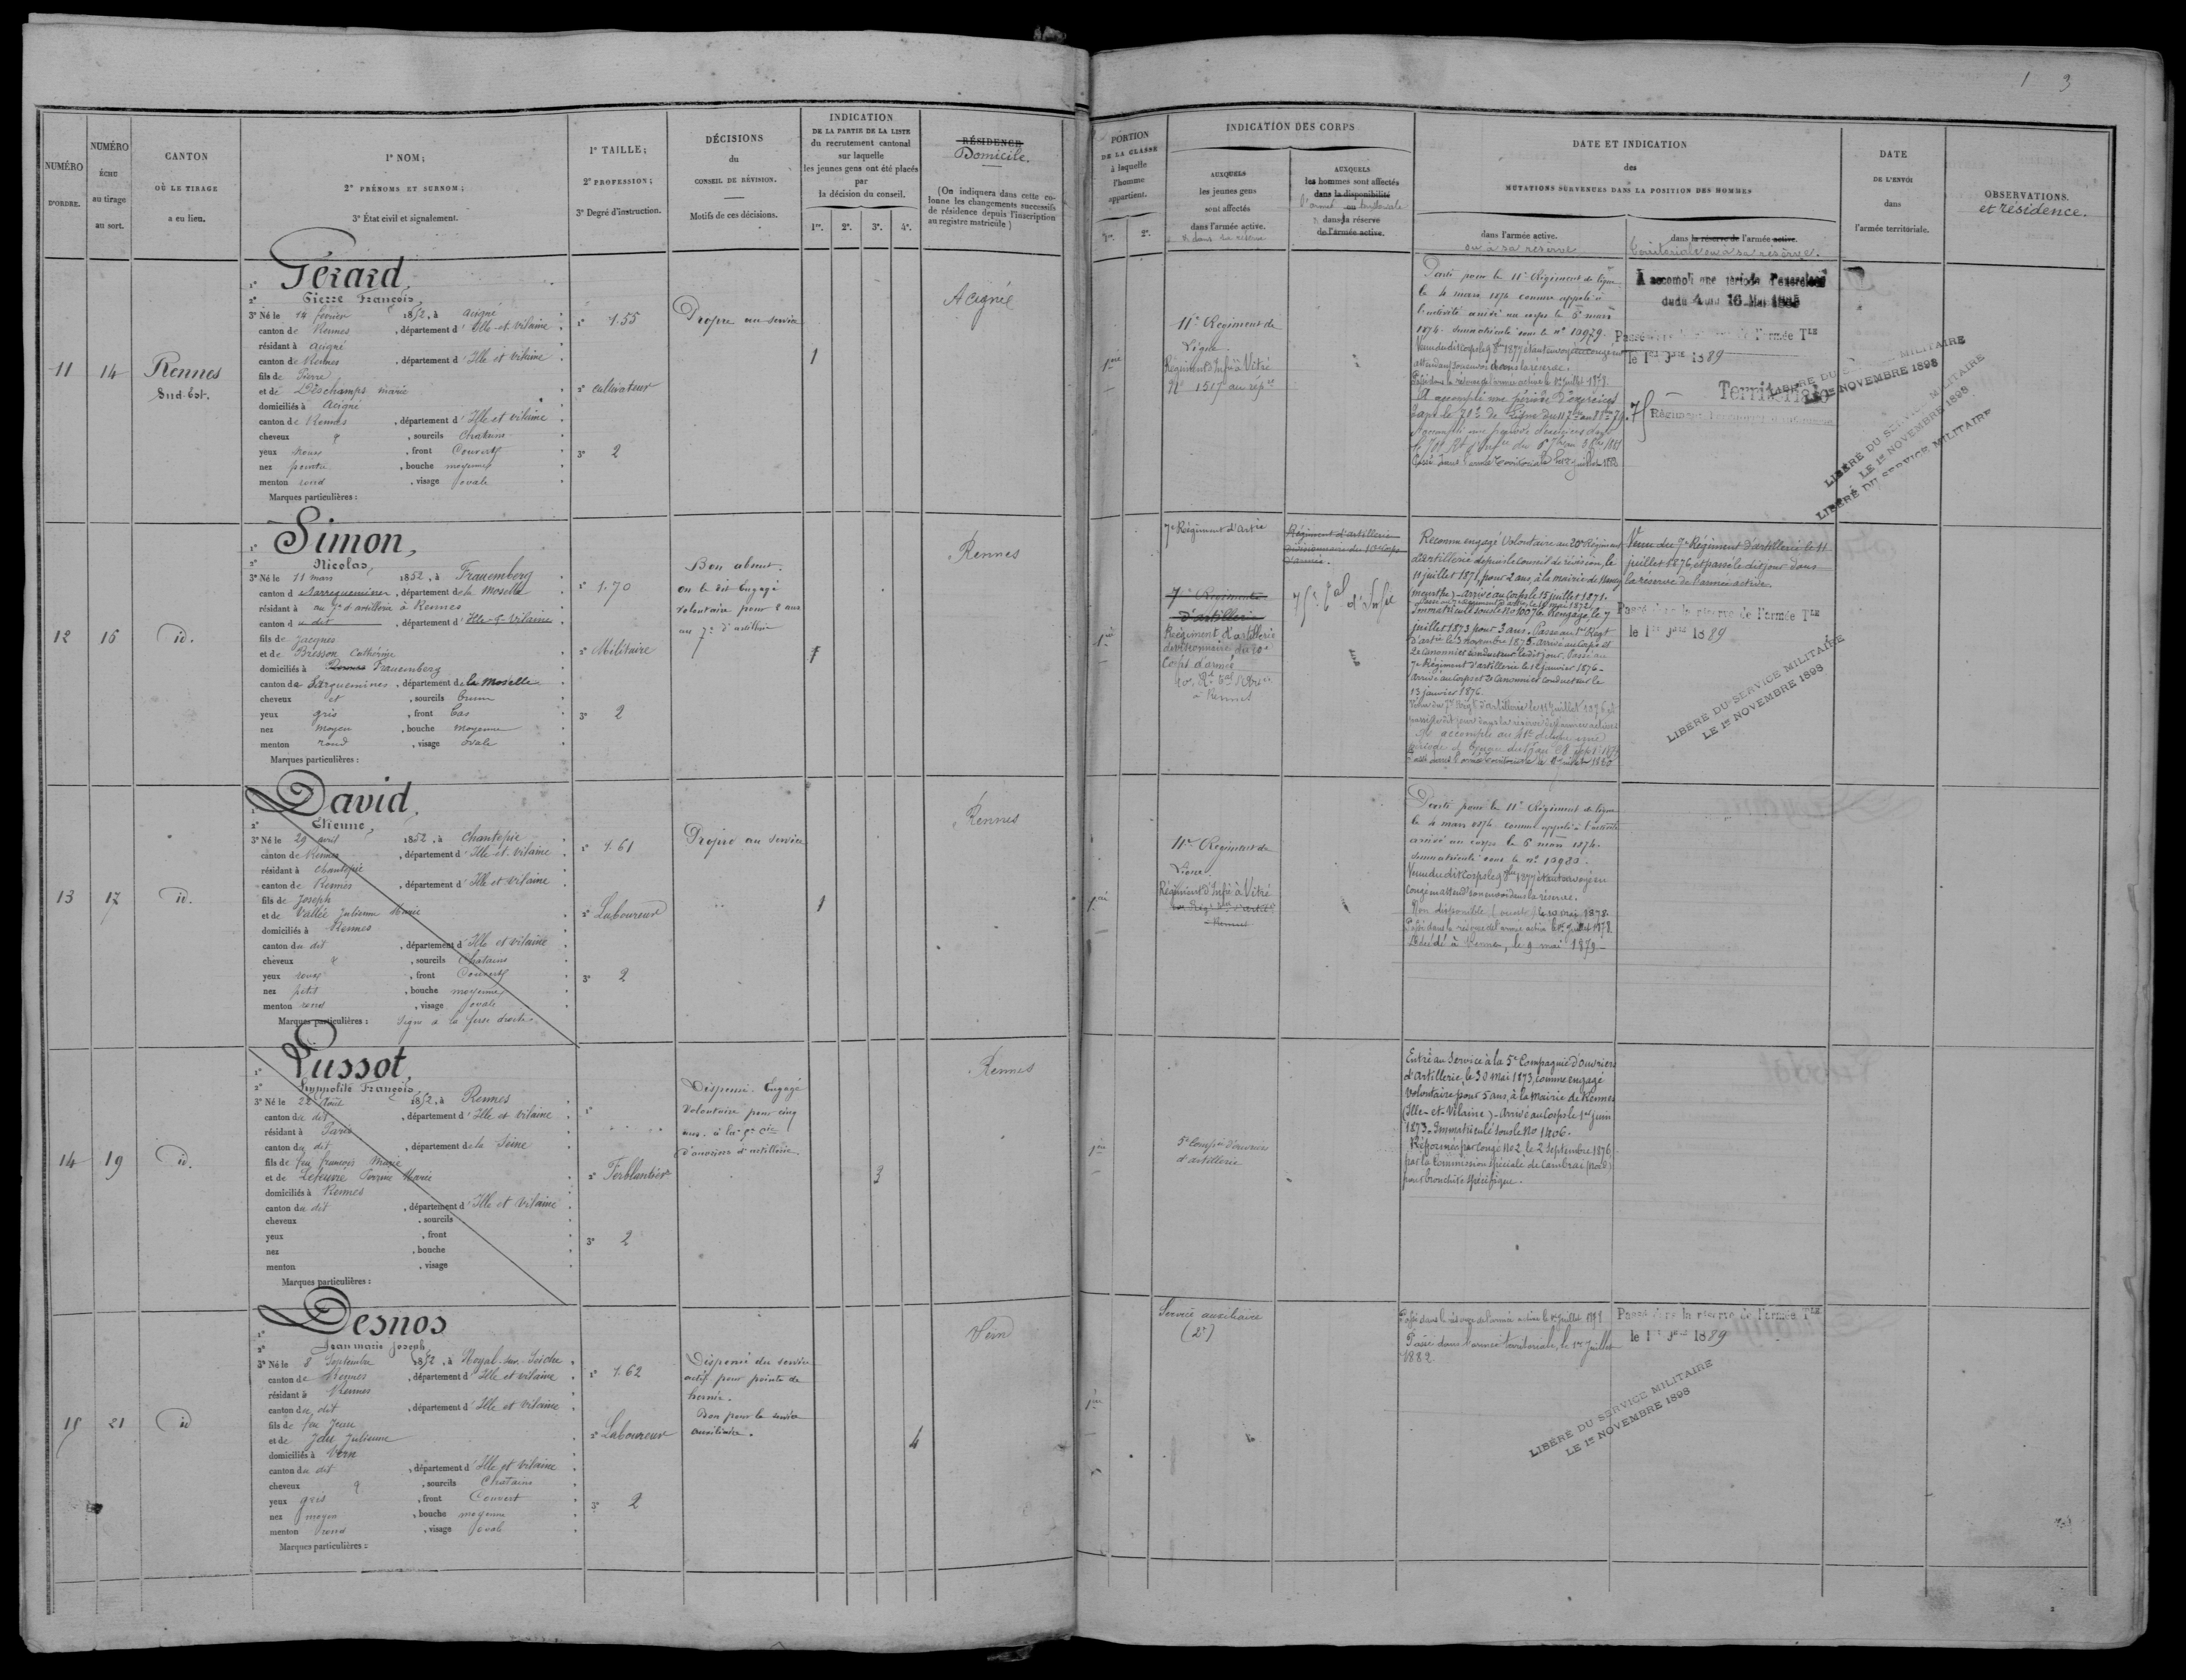 1 3
NUMÉRO D'ORDRE.
NUMÉRO ÉCHU au tirage au sort.
CANTON OÙ LE TIRAGE a eu lieu.
1° NOM;
2° PRÉNOMS ET SURNOM;
3° État civil et signalement.
1° TAILLE;
2° PROFESSION;
3° Degré d'instruction.
DÉCISIONS
du
CONSEIL DE RÉVISION.
Motifs de ces décisions.
INDICATION
DE LA PARTIE DE LA LISTE
du recrutement cantonal
sur laquelle
les jeunes gens ont été placés
par
la décision du conseil.
1re. 2e. 3e. 4e.
RÉSIDENCE
Domicile.
(On indiquera dans cette co-
lonne les changements successifs
de résidence depuis l'inscription
au registre matricule)
PORTION
DE LA CLASSE
à laquelle
l'homme
appartient.
1re. 2e.
INDICATION DES CORPS
AUXQUELS
les jeunes gens
sont affectés
dans l'armée active.
AUXQUELS
les hommes sont affectés
dans la disponibilité
ou
dans la réserve
de l'armée active.
DATE ET INDICATION
des
MUTATIONS SURVENUES DANS LA POSITION DES HOMMES
dans l'armée active.
ou à sa réserve
dans la réserve de l'armée active.
territoriale ou à sa réserve.
DATE
DE L'ENVOI
dans
l'armée territoriale.
OBSERVATIONS.
et résidence.
11
14
Rennes
Sud-Est.
1° Gérard,
2° Pierre François,
3° Né le 14 février 1852, à Acigné
canton de Rennes, département d'Ille-et-Vilaine
résidant à Acigné
canton de Rennes, département d'Ille et Vilaine
fils de Pierre
et de Deschamps Marie
domiciliés à Acigné
canton de Rennes, département d'Ille et Vilaine
cheveux, sourcils chatains
yeux roux, front Couvert
nez pointu, bouche moyenne
menton rond, visage ovale
Marques particulières :
1° 1.55
2° cultivateur
3° 2
Propre au service
1
Acigné
1ère
11e Régiment de
Ligne.
Régiment d'Infie à Vitré
Parti pour le 11e Régiment de ligne
le 4 mars 1874 comme appelé à
l'activité arrivé au corps le 6 mars
1874. Immatriculé sous le n° 10979.
Passé dans la réserve de l'armée active le 1er juillet 1878
A accompli une période d'exercices
A accompli une période d'exercices
du 4 au 16 Mai 1885
Passé dans la réserve de l'armée Tle
le 1er 9bre 1889
Territoriale
LIBÉRÉ DU SERVICE MILITAIRE
LE 1er NOVEMBRE 1898
LIBÉRÉ DU SERVICE MILITAIRE
LE 1er NOVEMBRE 1898
LIBÉRÉ DU SERVICE MILITAIRE
12
15
id.
1° Simon,
2° Nicolas,
3° Né le 11 mars 1852, à Frauemberg
canton d Sarreguemines, département de la Moselle
résidant à au 7e d'artillerie à Rennes
canton du dit, département d'Ille-et-Vilaine
fils de Jacques
et de Bresson Catherine
domiciliés à Rennes Frauemberg
canton de Sarguemines, département de la Moselle
cheveux et, sourcils brun
yeux gris, front bas
nez moyen, bouche moyenne
menton rond, visage ovale
Marques particulières :
1° 1.70
2° Militaire
3° 2
Bon absent.
on le dit Engagé
volontaire pour 2 ans
au 7e d'artillerie
1
Rennes
1ère
7e Régiment d'Artie
7e Régiment
d'artillerie
Régiment d'artillerie
divisionnaire du 10e
Corps d'armée
à Rennes
Régiment d'artillerie
divisionnaire du 10e Corps
d'armée.
75e tal d'Infie
Reconnu engagé Volontaire au 20e Régiment
d'artillerie depuis le Conseil de révision, le
11 juillet 1871, pour 2 ans, à la mairie de Nancy
(meurthe) - arrivé au Corps le 15 juillet 1871.
Immatriculé sous le No 10076. Rengagé, le 7
juillet 1873 pour 3 ans. Passé au 1er Régt
d'artie le 3 novembre 1875. arrivé au Corps et
2e canonnier conducteur le dit jour. Passé au
7e Régiment d'artillerie le 1er janvier 1876 -
arrivé au corps et 2e canonnier conducteur le
13 janvier 1876.
Passé dans l'armée territoriale le 1er juillet 1880
Venu du 7e Régiment d'artillerie le 11
juillet 1876, et passé le dit jour dans
la réserve de l'armée active.
Passé dans la réserve de l'armée Tle
le 1er 9bre 1889
LIBÉRÉ DU SERVICE MILITAIRE
LE 1er NOVEMBRE 1898
13
17
id.
1° David,
2° Etienne,
3° Né le 29 avril 1852, à Chantepie
canton de Rennes, département d'Ille-et-Vilaine
résidant à Chantepie
canton de Rennes, département d'Ille et Vilaine
fils de Joseph
et de Vallée Julienne Marie
domiciliés à Rennes
canton du dit, département d'Ille et Vilaine
cheveux, sourcils Chatains
yeux roux, front Couvert
nez petit, bouche moyenne
menton rond, visage ovale
Marques particulières : Signe à la fesse droite
1° 1.61
2° Laboureur
3° 2
Propre au service
1
Rennes
1ère
11e Régiment de
Ligne.
Régiment d'Infie à Vitré
Rennes
Parti pour le 11e Régiment de ligne
le 4 mars 1874 comme appelé à l'activité
arrivé au corps le 6 mars 1874.
Immatriculé sous le n° 10980.
Passé dans la réserve de l'armée active le 1er Juillet 1878
Décédé à Rennes, le 9 mai 1879 -
14
19
id.
1° Pussot,
2° Hyppolite François,
3° Né le 22 Août 1852, à Rennes
canton du dit, département d'Ille et Vilaine
résidant à Paris
canton du dit, département de la Seine
fils de feu François Marie
et de Lefeuvre Perrine Marie
domiciliés à Rennes
canton du dit, département d'Ille et Vilaine
cheveux, sourcils
yeux, front
nez, bouche
menton, visage
Marques particulières :
1°
2° Ferblantier
3° 2
Dispensé. Engagé
Volontaire pour cinq
ans à la 5e Cie
d'ouvriers d'artillerie.
3
Rennes
1ère
5e Compie d'ouvriers
d'artillerie
Entré au Service à la 5e Compagnie d'ouvriers
d'Artillerie, le 30 Mai 1873, comme engagé
Volontaire pour 5 ans, à la Mairie de Rennes
(Ille-et-Vilaine) - Arrivé au Corps le 1er juin
1873. Immatriculé sous le No 1406.
Réformé par Congé No 2 le 2 Septembre 1876,
par la Commission spéciale de Cambrai (nord)
pour bronchite spécifique.
15
21
id
1° Desnos
2° Jean Marie Joseph,
3° Né le 8 Septembre 1852, à Noyal-sur-Seiche
canton de Rennes, département d'Ille et Vilaine
résidant à Rennes
canton du dit, département d'Ille et Vilaine
fils de feu Jean
et de Julienne
domiciliés à Vern
canton du dit, département d'Ille et Vilaine
cheveux, sourcils Chatains
yeux gris, front Couvert
nez moyen, bouche moyenne
menton rond, visage ovale
Marques particulières :
1° 1.62
2° Laboureur
3° 2
Dispensé du service
actif pour pointe de
hernie.
Bon pour le service
auxiliaire.
4
Vern
1ère
Service auxiliaire
(2e)
Passé dans la réserve de l'armée active le 1er Juillet
Passé dans l'armée territoriale, le 1er Juillet
1882
Passé dans la réserve de l'armée Tle
le 1er 9bre 1889
LIBÉRÉ DU SERVICE MILITAIRE
LE 1er NOVEMBRE 1898